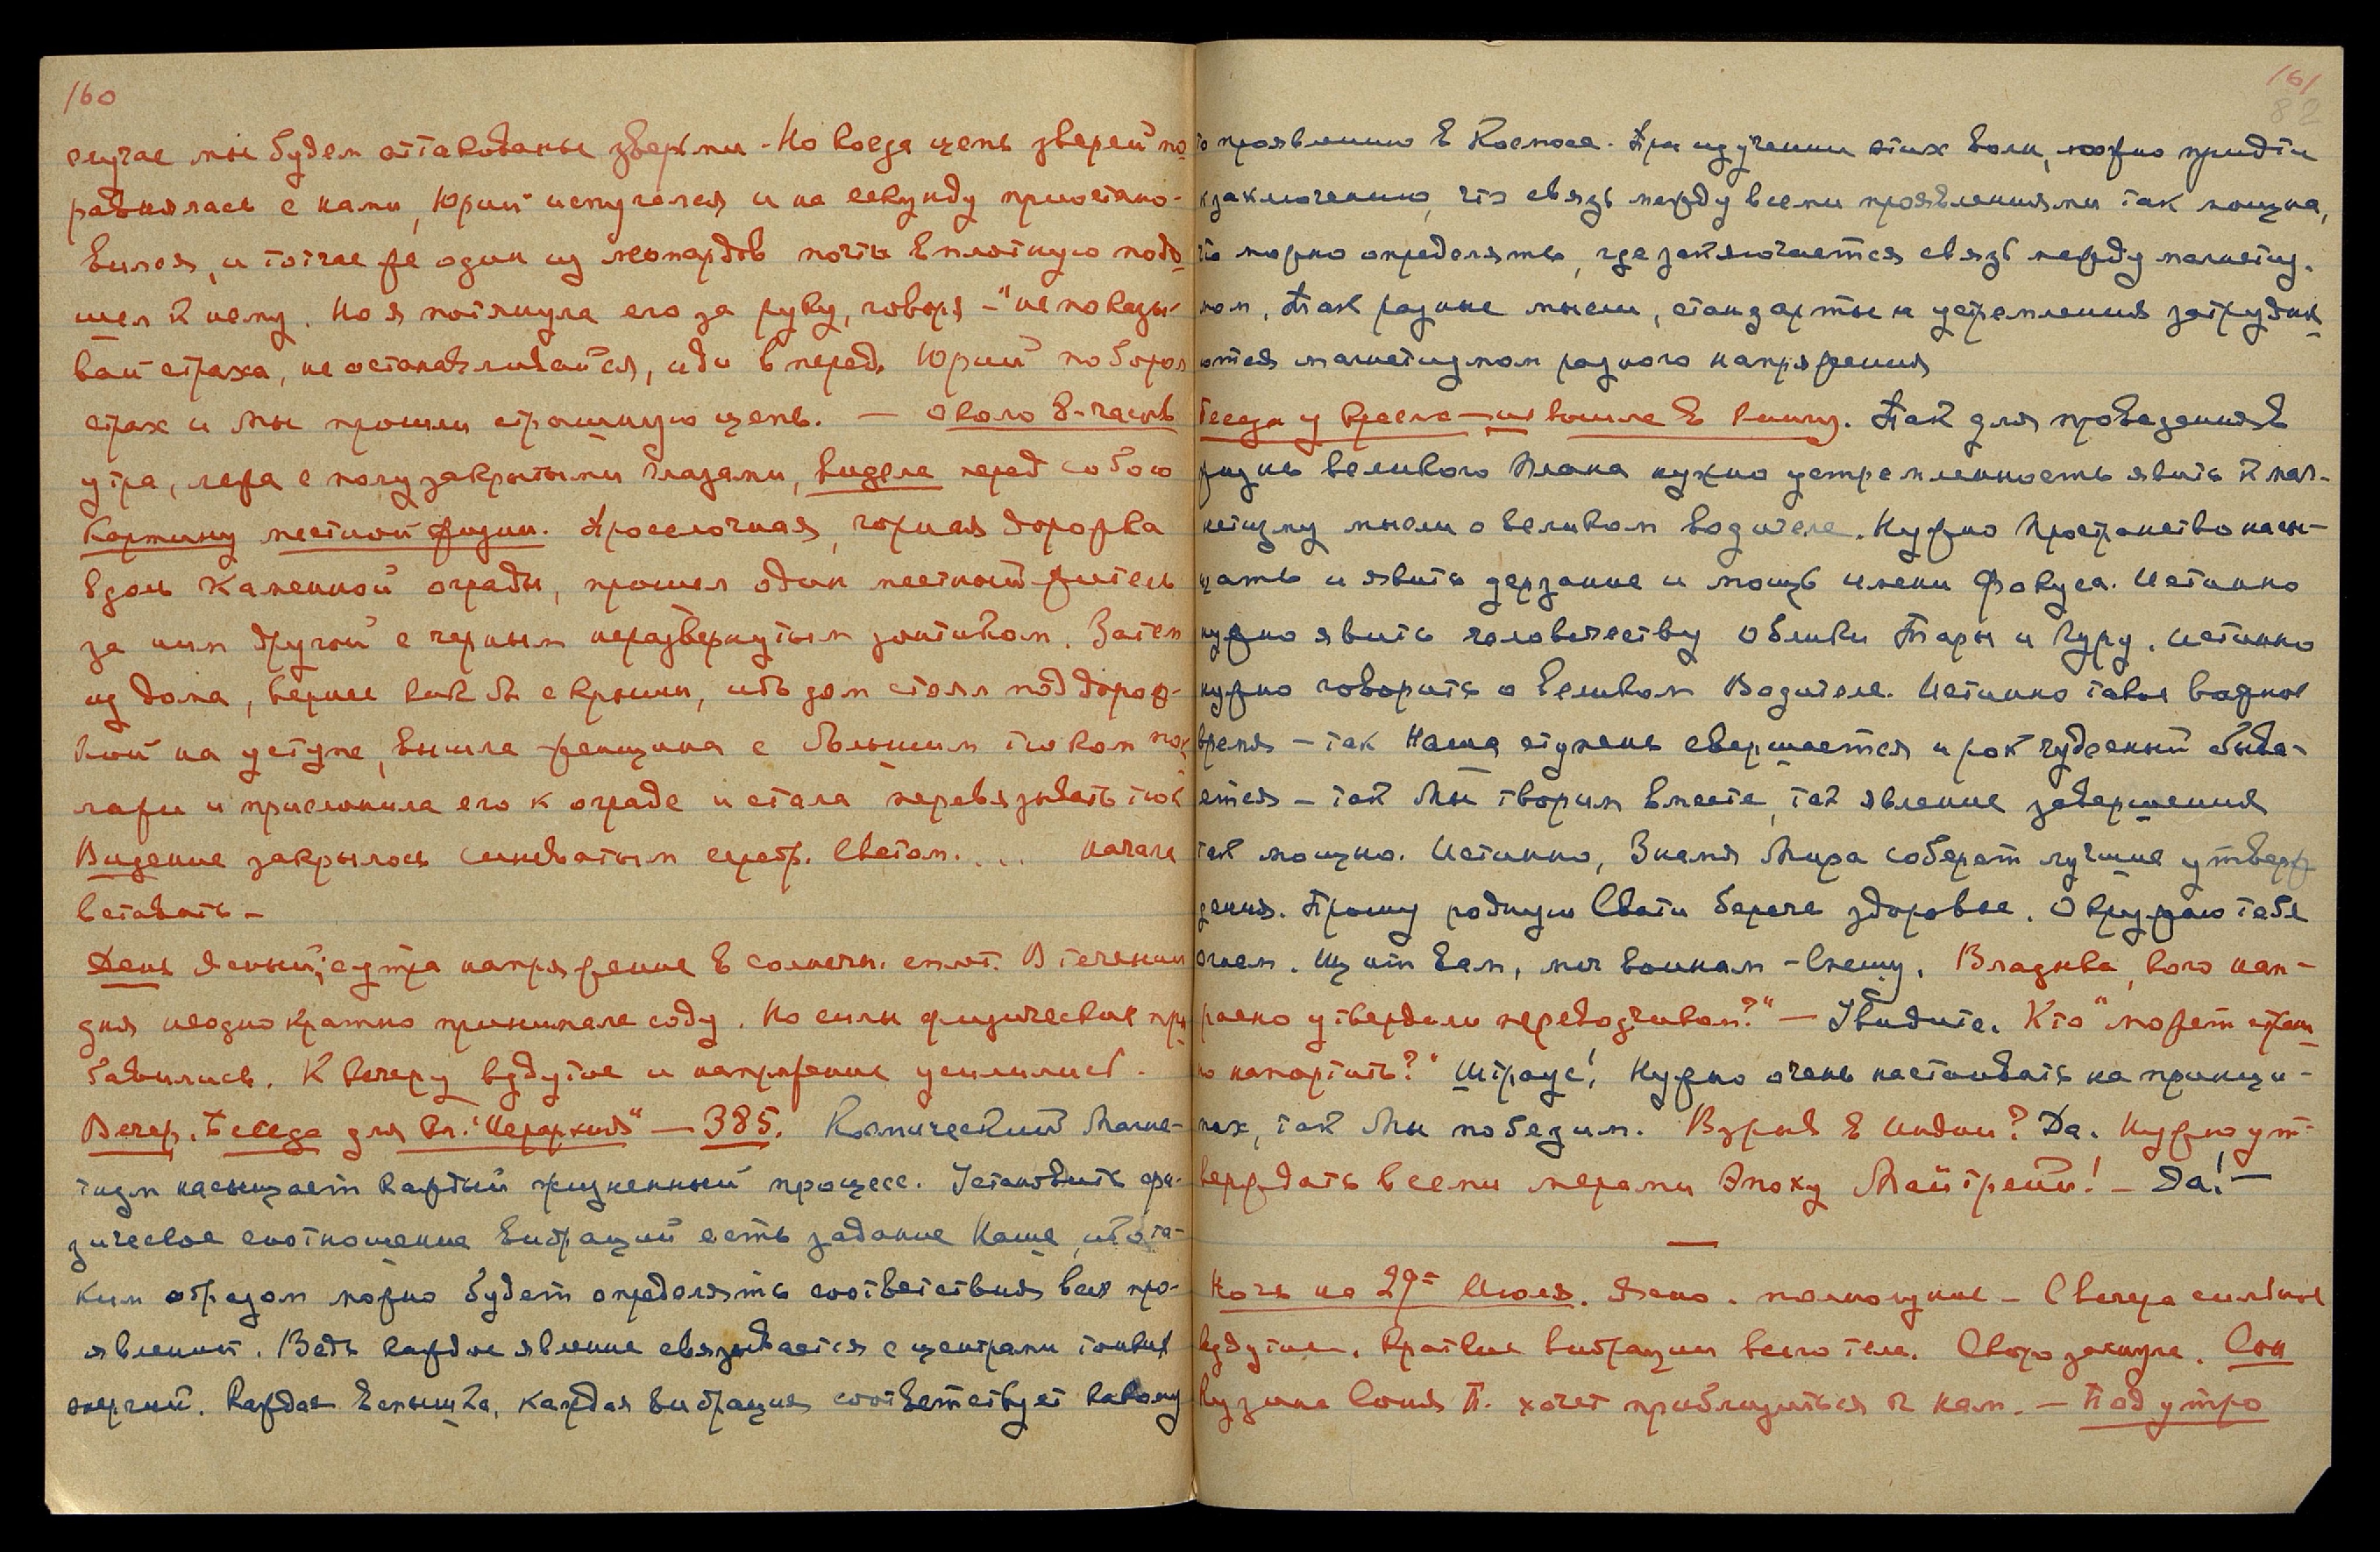 160
случае мы будем аттакованы зверьми. Но когда цепь зверей по
равнялась с нами, Юрий испугался и на секунду приостано-
вился, и тотчас же один из леопардов почти вплотную подо
шел к нему. Но я потянула его за руку, говоря – "не показы-
вай страха, не останавливайся, иди вперед. Юрий поборол
страх и мы прошли страшную цепь. — Около 8-часов
утра, лежа с полузакрытыми глазами, видела перед собою
картину местной жизни. Проселочная, горная дорожка
вдоль каменной ограды, прошел один местный житель
за ним другой с черным неразвернутым зонтиком. Затем
из дома, вернее как бы с крыши, ибо дом стоял под дорож-
кой на уступе, вышла женщина с большим тюком пок
лажи и прислонила его к ограде и стала перевязывать тюк
Видение закрылось синеватым серебр. Светом.... начала
вставать –
День ясный; с утра напряжение в солнечн. сплет. В течении
дня неоднократно принимала соду. Но силы физические при
бавились. К вечеру вздутие и напряжение усилились.
Вечер. Беседа для кн. "Иерархия" — 385. Космический Магне-
тизм насыщает каждый жизненный процесс. Установить фи-
зическое соотношение вибраций есть задание Наше, ибо та-
ким образом можно будет определять соответствия всех про-
явлений. Ведь каждое явление связывается с центрами тонких
энергий. Каждая вспышка, каждая вибрация соответствует какому
161
82
то проявлению в Космосе. При изучении этих волн, можно придти
к заключению, что связь между всеми проявлениями так мощна,
что можно определять, где заключается связь между магнетиз-
мом. Так разные мысли, стандарты и устремления затрудня
ются магнетизмом разного напряжения
Беседа у кресла — не вошла в книгу. Так для проведения в
жизнь великого Плана нужно устремленность явить к маг-
нетизму мысли о великом водителе. Нужно пространство насы-
щать и явить дерзание и мощь имени Фокуса. Истинно
нужно явить человечеству облики Тары и Гуру. Истинно
нужно говорить о великом Водителе. Истинно такое важное
время – так Наша ступень свершается и рок чудесный сбыва-
ется – так Мы творим вместе, так явление завершения
так мощно. Истинно, Знамя Мира соберет лучшие утверж
дения. Прошу родную Свати беречь здоровье. Окружаю тебя
Огнем. Щит вам, меч воинам – спешу. Владыка, кого нап-
расно утвердили переводчиком?" — Увидите. Кто "может
но напортить?" Штраус! Нужно очень настаивать на принци-
пах, так Мы победим. Взрыв в Индии? Да. Нужно ут-
верждать всеми мерами Эпоху Майтрейи! – Да! –
—
Ночь на 29ое Июля. Ясно. полнолуние – С вечера сильное
вздутие. Краткие вибрации всего тела. Скоро заснула. Сон
Кузина Соня П. хочет приблизиться к нам. — Под утро